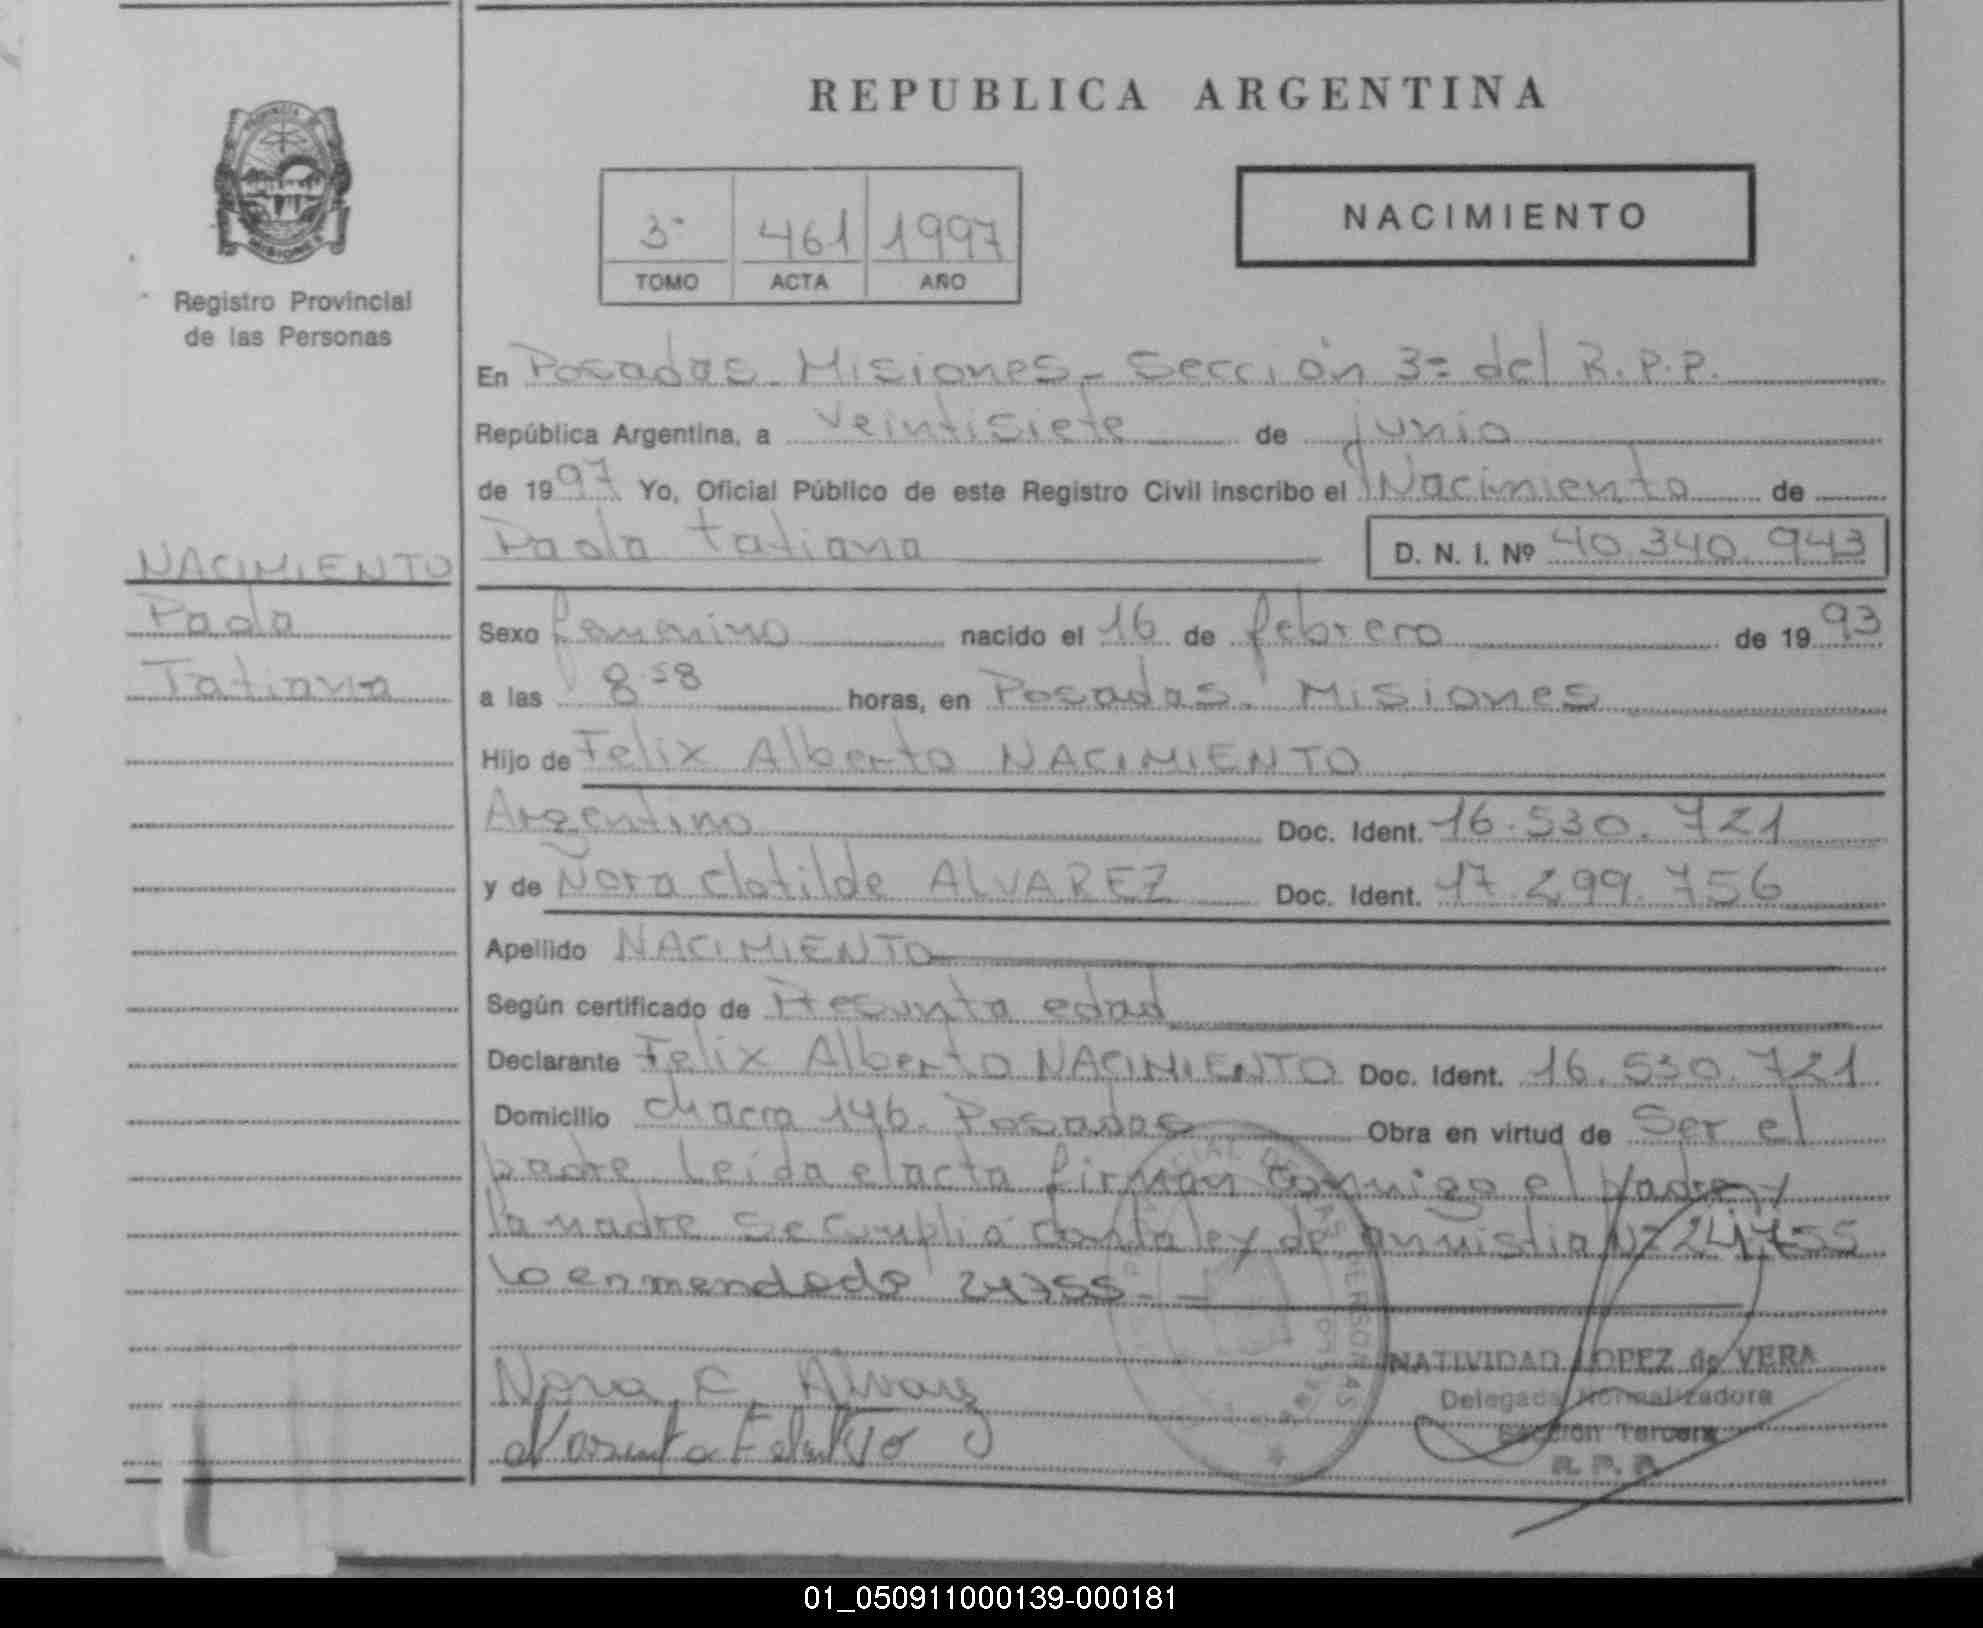 REPUBLICA ARGENTINA
Registro Provincial
de las Personas
3ª 461 1997
TOMO ACTA AÑO
NACIMIENTO
En Posadas Misiones - Sección 3ª del R.P.P.
República Argentina, a veintisiete de junio
de 1997 Yo, Oficial Público de este Registro Civil inscribo el Nacimiento de
Paola Tatiana D. N. I. Nº 40.340.943
NACIMIENTO
Paola
Tatiana
Sexo femenino nacido el 16 de febrero de 1993
a las 8.58 horas, en Posadas. Misiones
Hijo de Felix Alberto NACIMIENTO
Argentino Doc. Ident. 16.530.721
y de Nora Clotilde ALVAREZ Doc. Ident. 17.299.756
Apellido NACIMIENTO
Según certificado de Presunta edad
Declarante Felix Alberto NACIMIENTO Doc. Ident. 16.530.721
Domicilio chacra 146. Posadas Obra en virtud de ser el
padre Leída el acta firman conmigo el padre y
la madre se cumplió con la ley de amnistia Nº 24755
lo enmendado 24755 - -
NATIVIDAD LOPEZ de VERA
Delegada Normalizadora
Sección Tercera
R. P. P.
Nora C. Alvarez
01_050911000139-000181